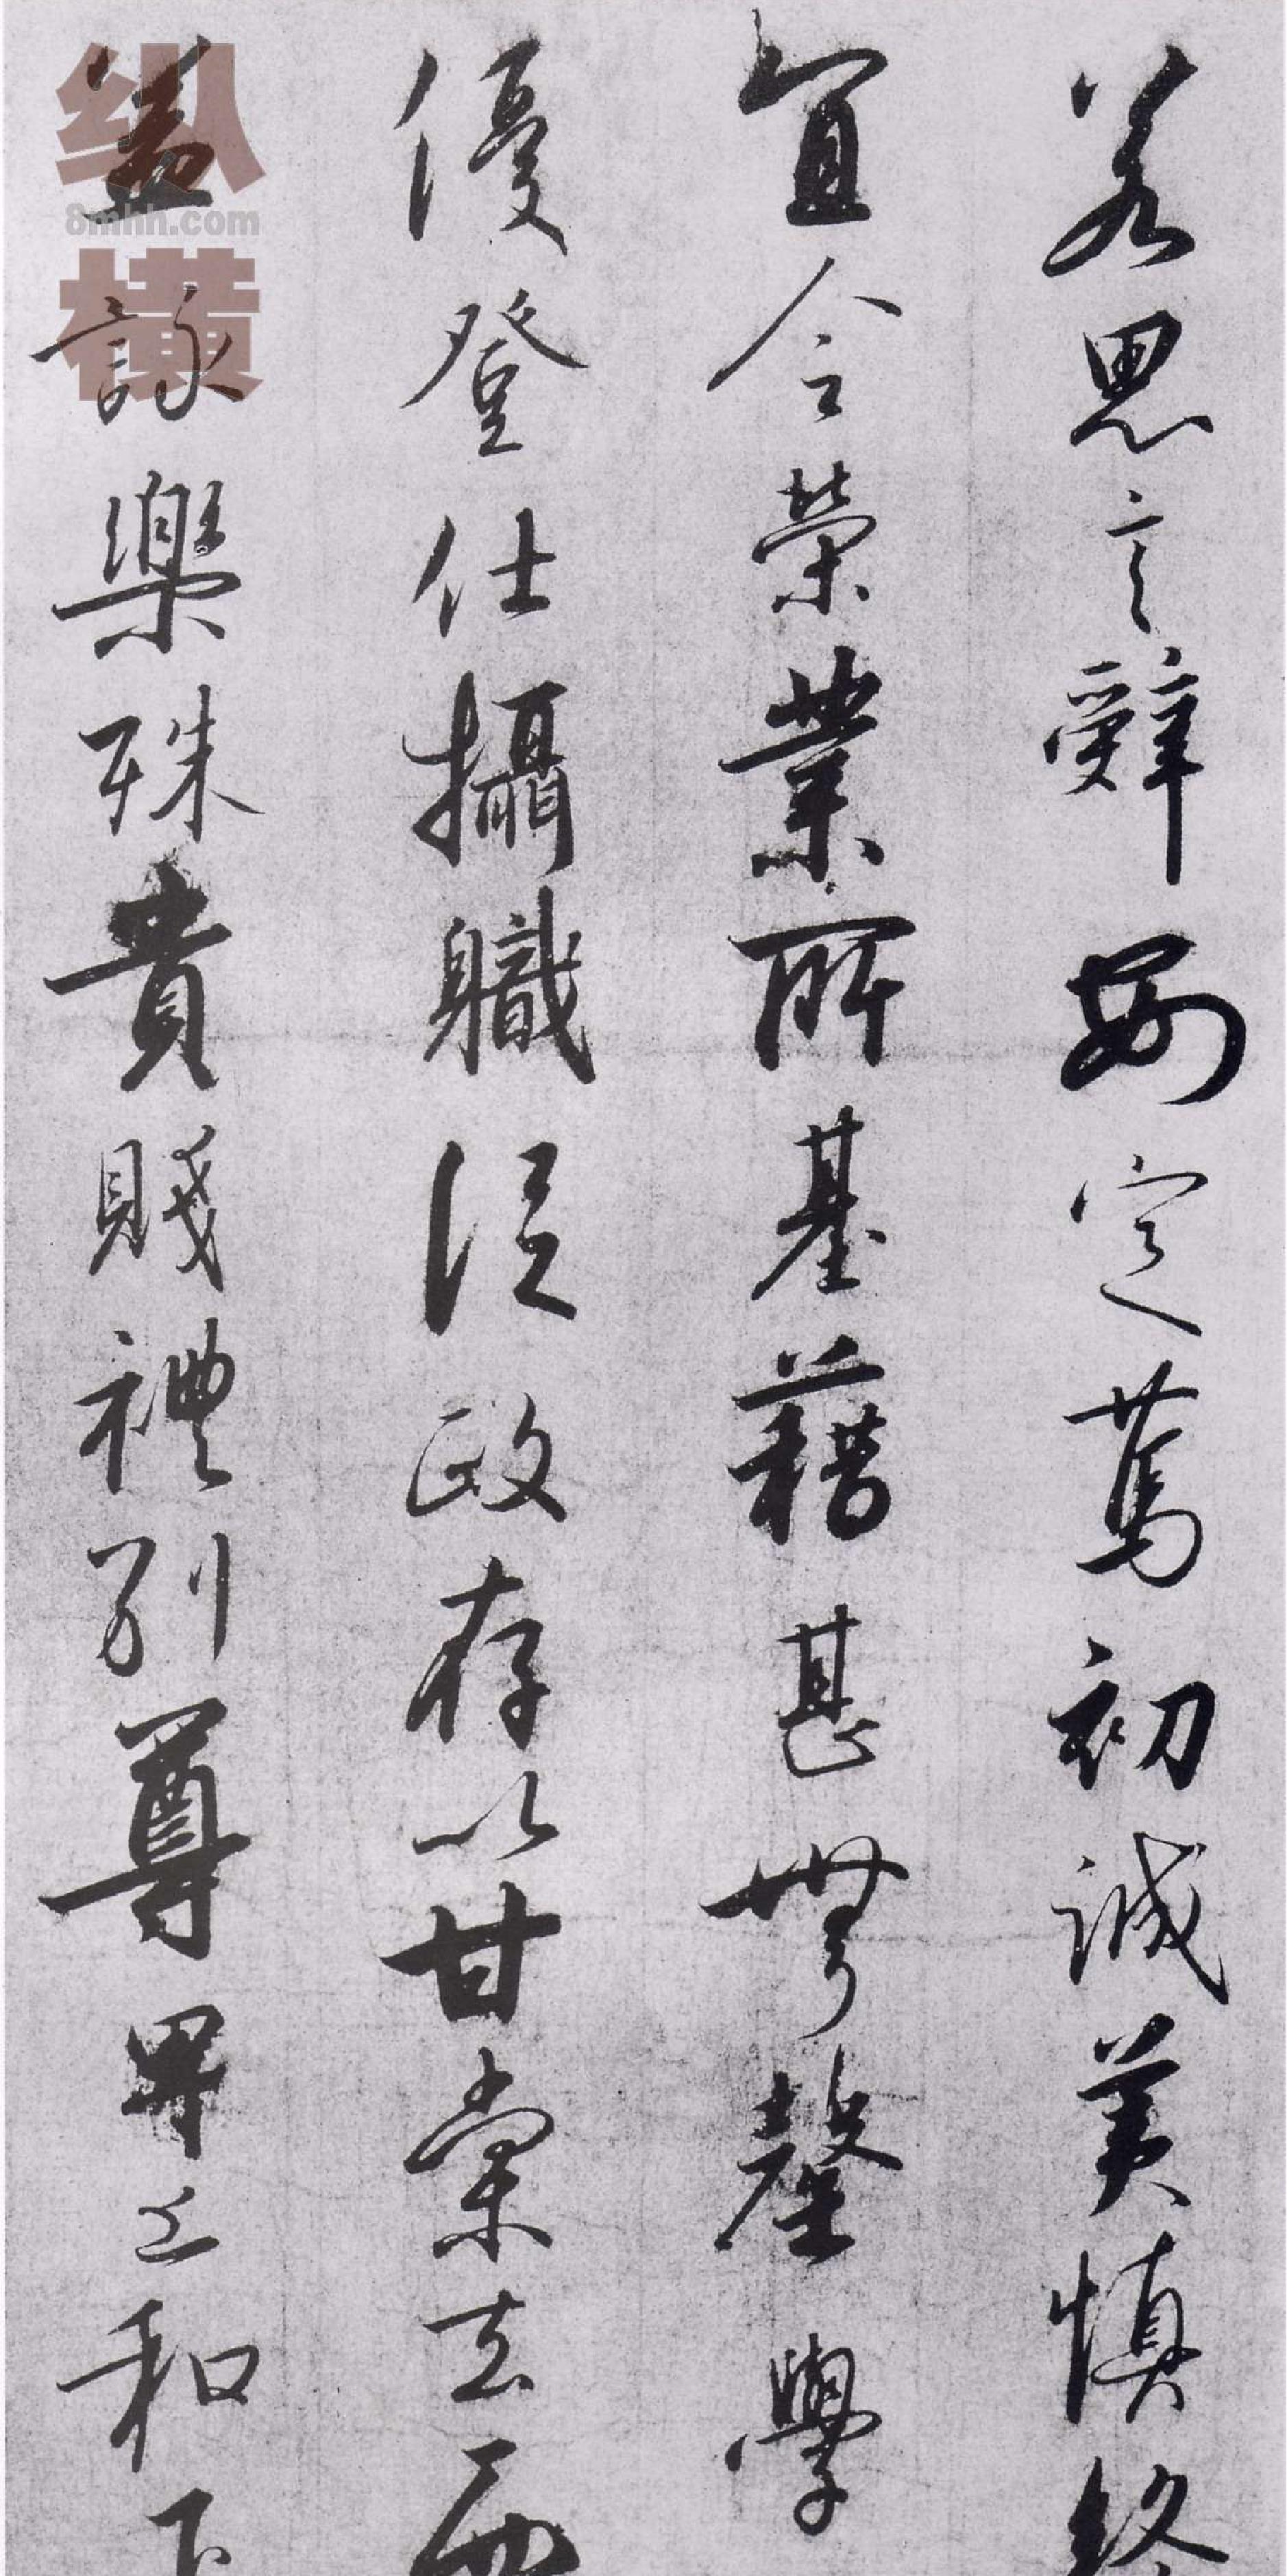 若思言辭安定篤初誠美慎終
宜令榮業所基藉甚無罄學
優登仕攝職從政存以甘棠去而
益詠樂殊貴賤禮別尊卑上和下
纵横
8mhh.com